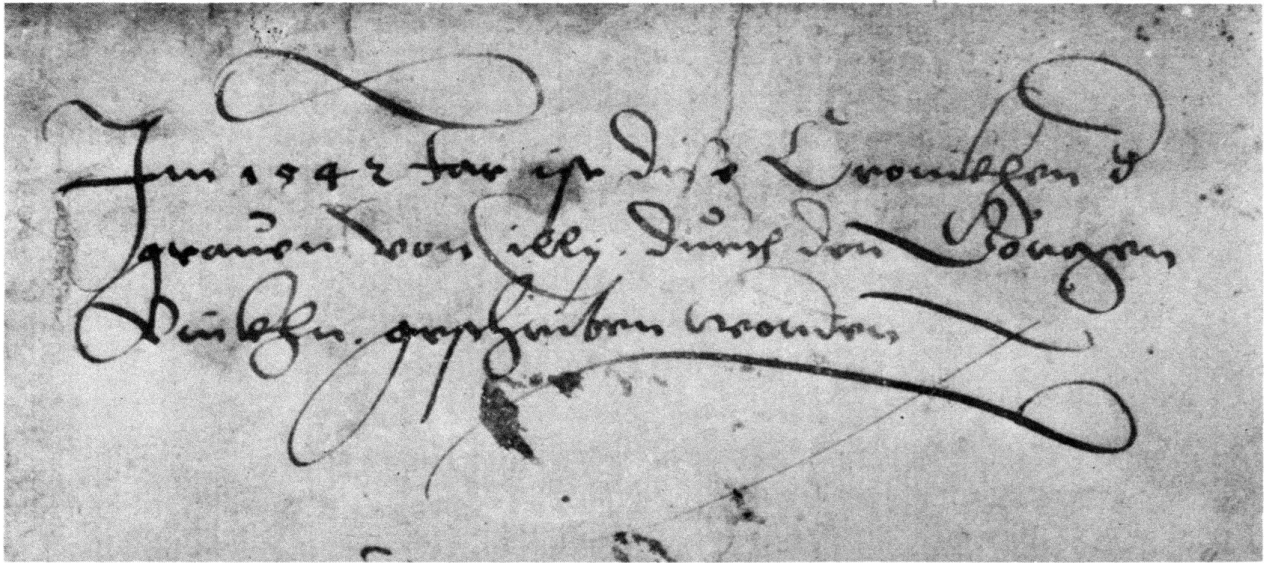 Im 1542 Jar ist dise Cronickhen d
grauen von Cilly. durch den Görgen
geschriben worden